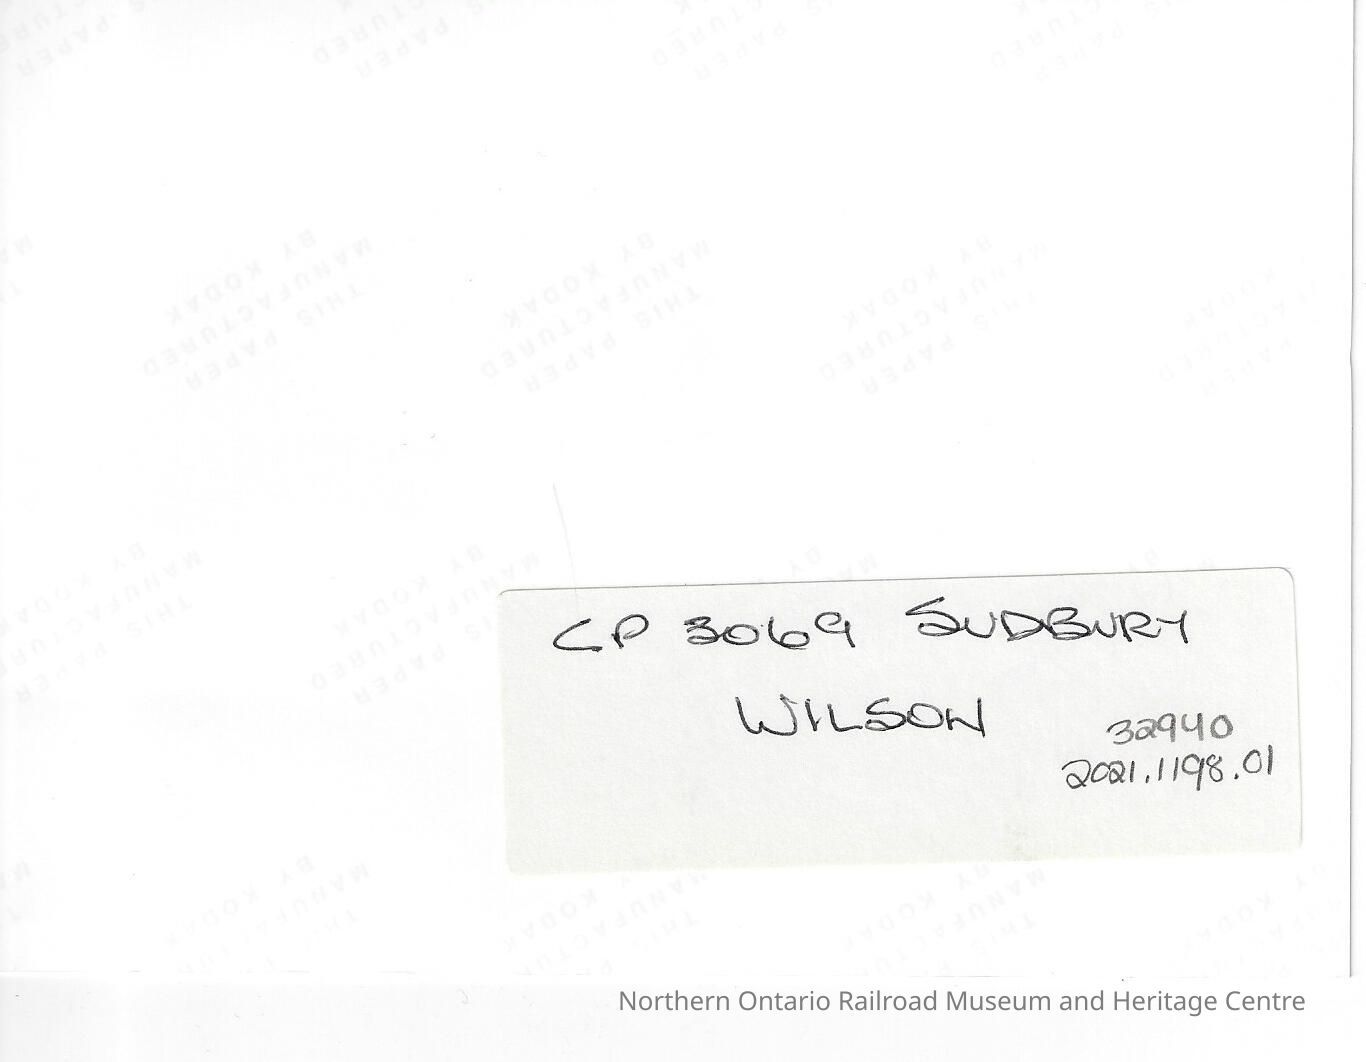 CP 3069 SUDBURY
WILSON
32940
2021.1198.01
THIS PAPER
MANUFACTURED
BY KODAK
Northern Ontario Railroad Museum and Heritage Centre